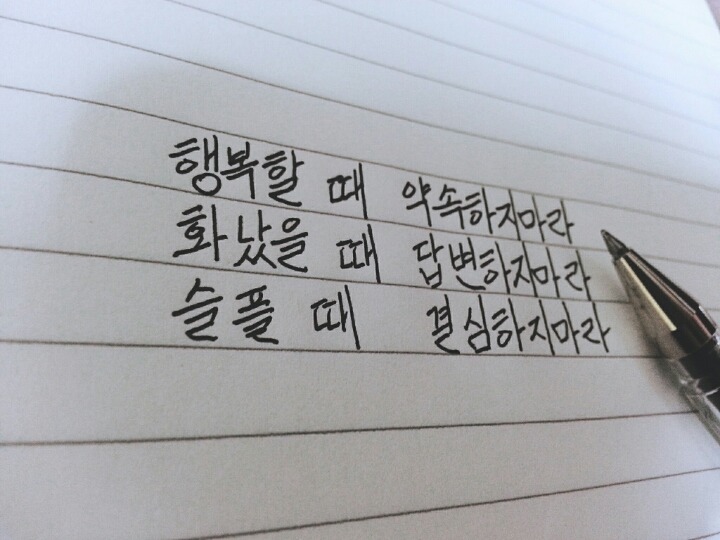 행복할 때 약속하지마라
화났을 때 답변하지마라
슬플 때 결심하지마라